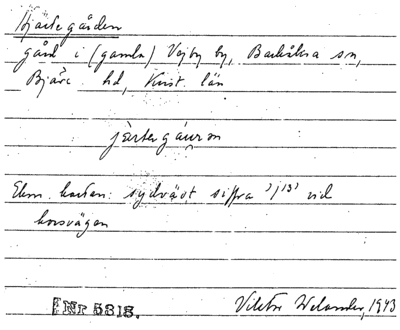 Hjärtegården
gård i (gamla) Vejby by, Barkåkra sn,
Bjäre hd, Krist. län
järtegáuron
Ekon. kartan: sydväst siffra "j13" vid
korsvägen
Nr 5318.
Viktor Welander, 1943